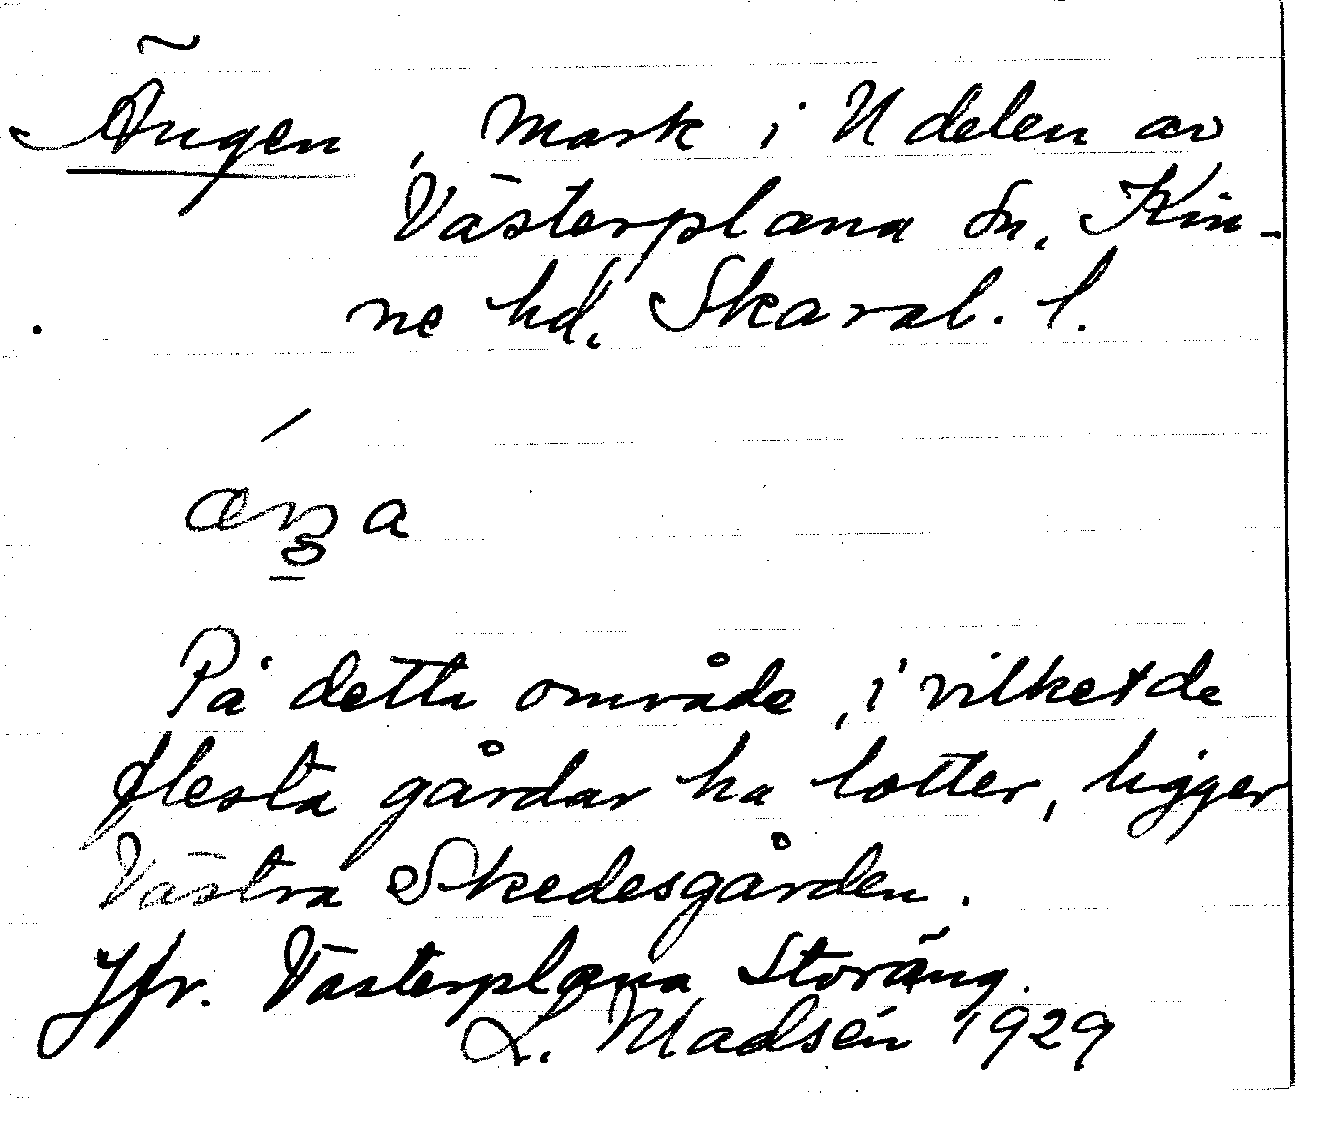 Ängen, Mark i N delen av
Västerplana sn, Kin-
ne hd, Skarab. l.
På detta område, i vilket de
flesta gårdar ha lotter, ligger
Västra Skedesgården.
Jfr. Västerplana Storäng.
L. Madsén 1929